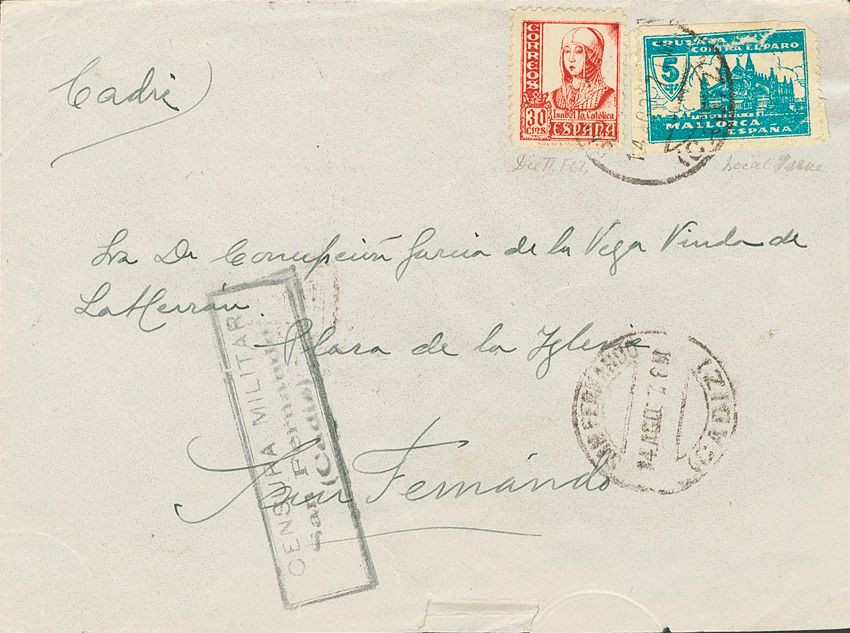 Cadiz
CORREOS
30
CTS
Isabel la Católica
ESPAÑA
CRUZADA
CONTRA EL PARO
5
MALLORCA
ESPAÑA
Local Issue
Sra Da Concepción Garcia de la Vega Viuda de
La Herrán.
Plaza de la Iglesia
San Fernando
CENSURA MILITAR
San Fernando
(Cádiz)
SAN FERNANDO
14 AGO
(CADIZ)